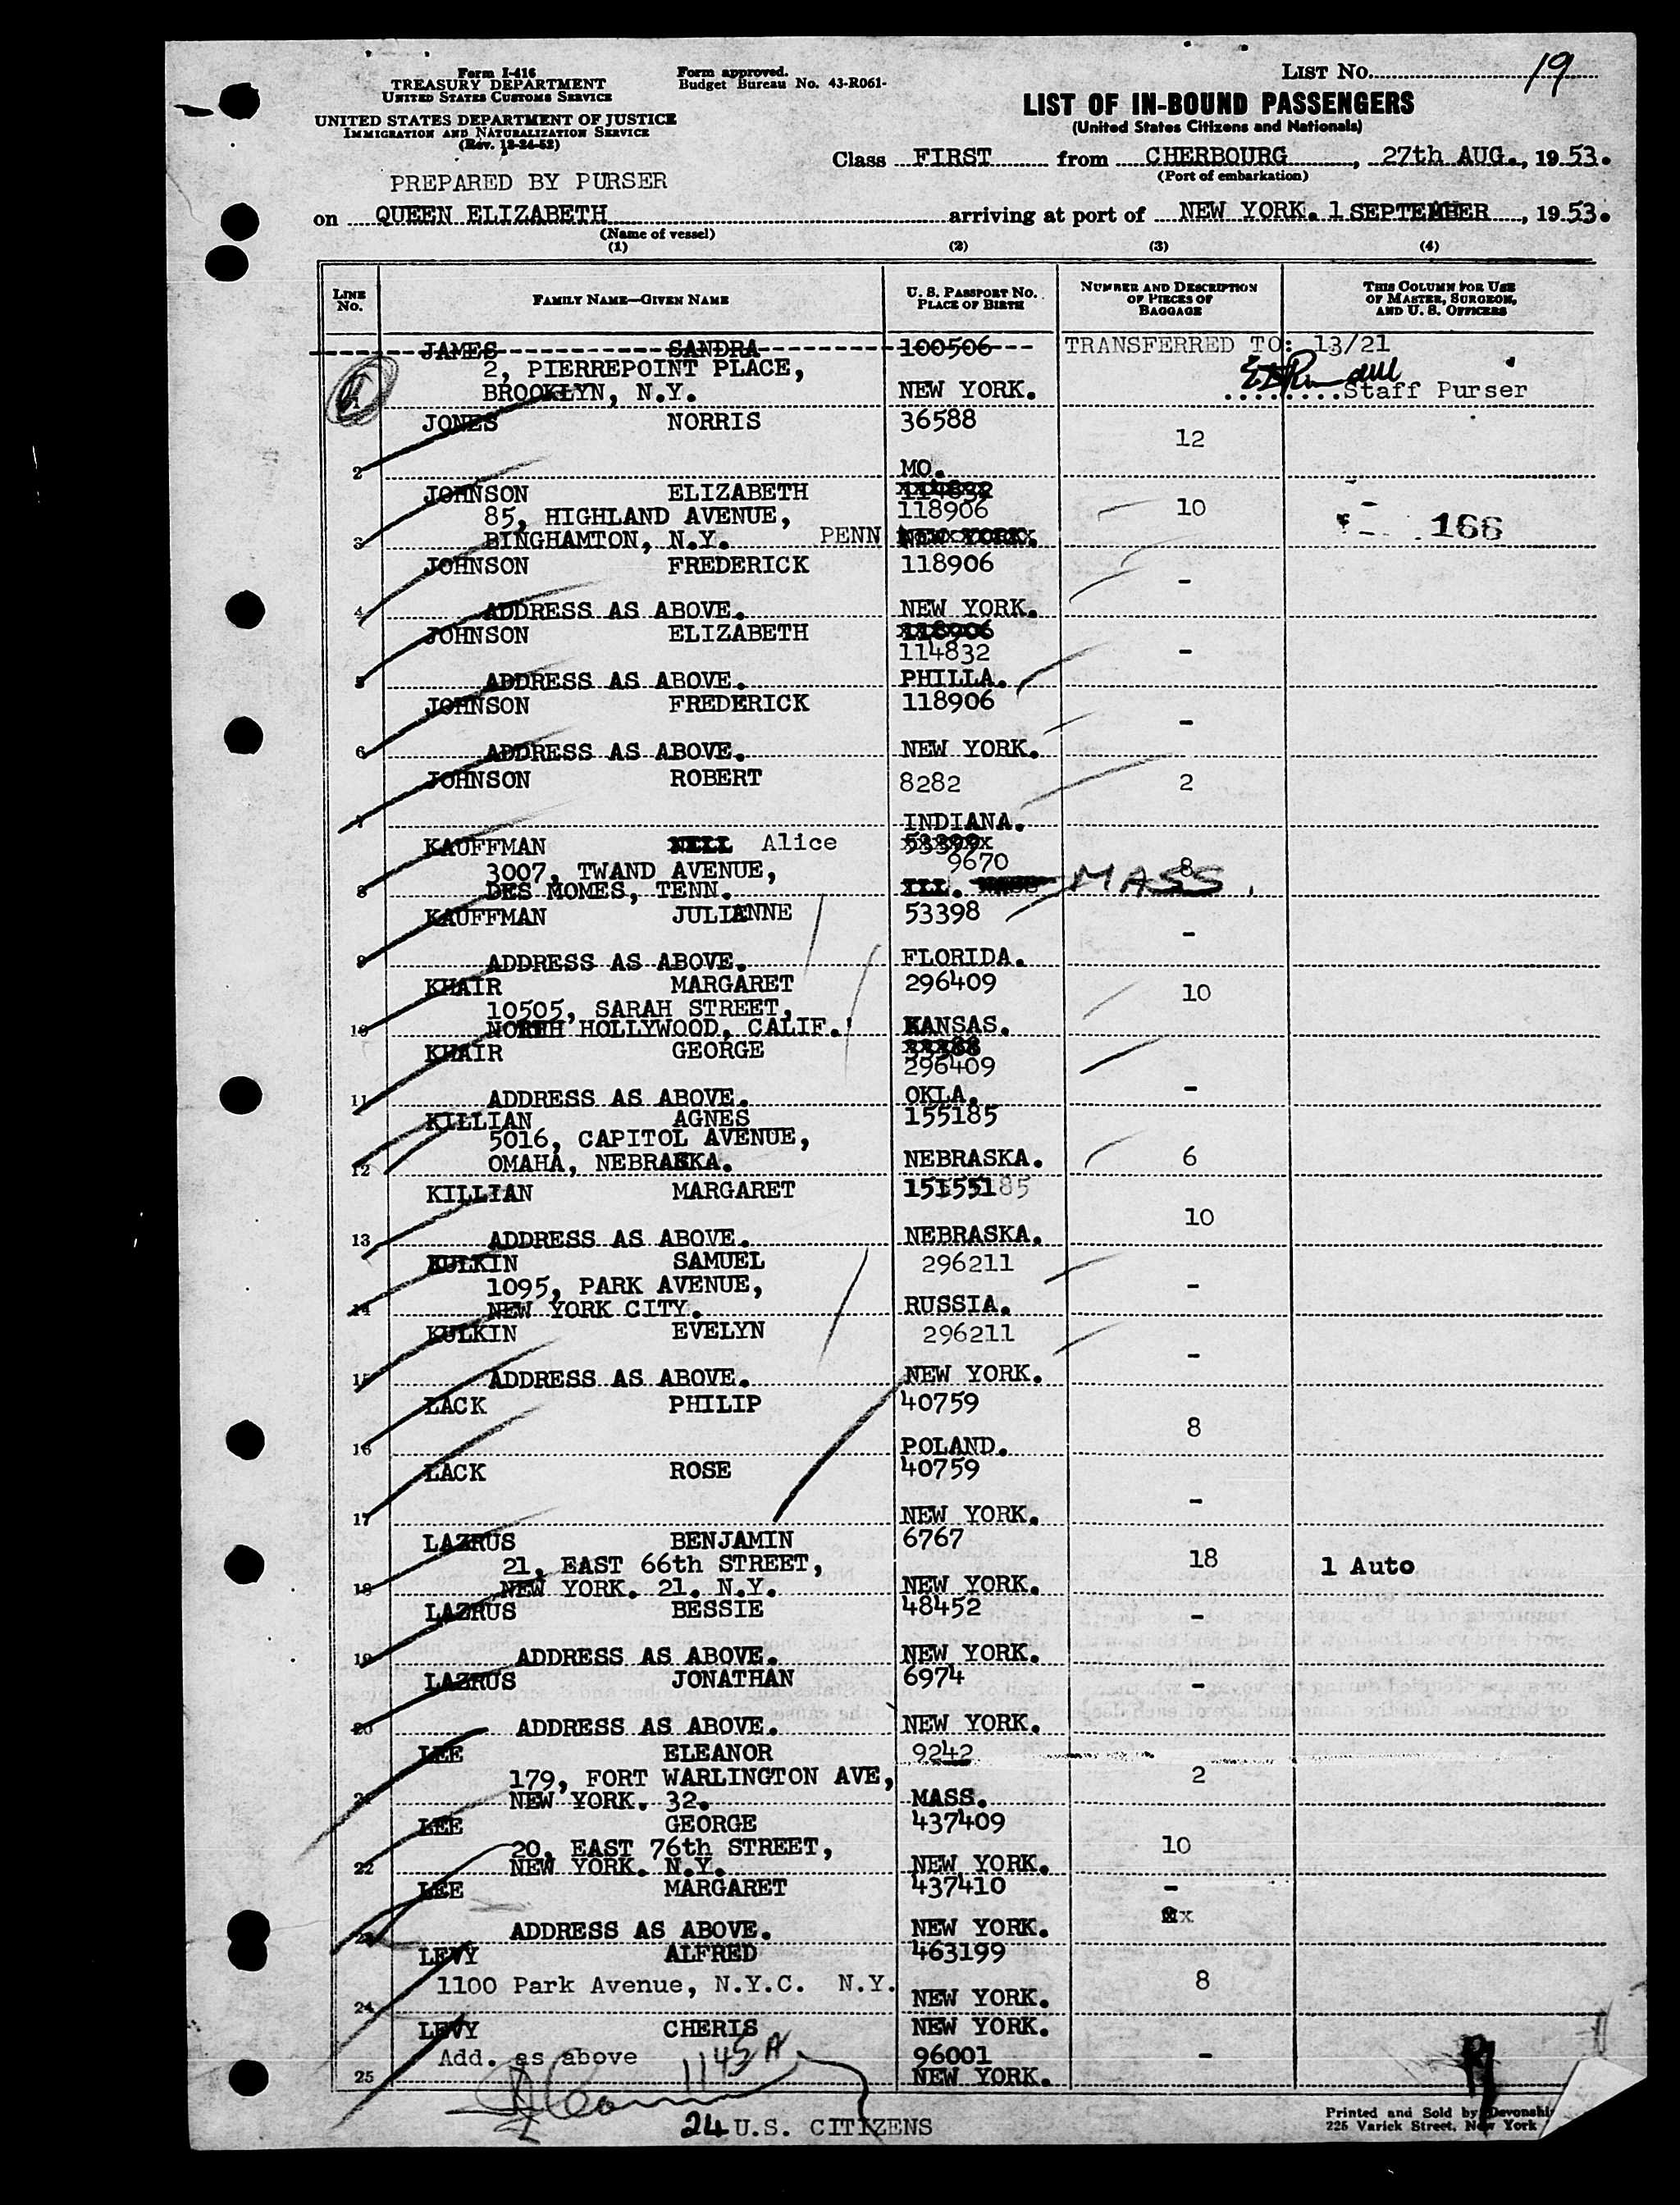 Form I-416
TREASURY DEPARTMENT
UNITED STATES CUSTOMS SERVICE
UNITED STATES DEPARTMENT OF JUSTICE
IMMIGRATION AND NATURALIZATION SERVICE
(Rev. 12-24-52)
Form approved.
Budget Bureau No. 43-R061-
LIST NO. 19
LIST OF IN-BOUND PASSENGERS
(United States Citizens and Nationals)
Class FIRST from CHERBOURG, 27th AUG., 1953.
(Port of embarkation)
PREPARED BY PURSER
on QUEEN ELIZABETH arriving at port of NEW YORK. 1 SEPTEMBER, 1953.
(Name of vessel)
(1) (2) (3) (4)
LINE NO. FAMILY NAME—GIVEN NAME U. S. PASSPORT NO. PLACE OF BIRTH NUMBER AND DESCRIPTION OF PIECES OF BAGGAGE THIS COLUMN FOR USE OF MASTER, SURGEON, AND U. S. OFFICERS
JAMES SANDRA 100506 TRANSFERRED TO: 13/21
2, PIERREPOINT PLACE,
1 BROOKLYN, N.Y. NEW YORK. ........Staff Purser
JONES NORRIS 36588
12
2 MO.
JOHNSON ELIZABETH 114832
85, HIGHLAND AVENUE, 118906 10
3 BINGHAMTON, N.Y. PENN NEW YORK. 166
JOHNSON FREDERICK 118906
-
4 ADDRESS AS ABOVE. NEW YORK.
JOHNSON ELIZABETH 118906
114832 -
5 ADDRESS AS ABOVE. PHILLA.
JOHNSON FREDERICK 118906
-
6 ADDRESS AS ABOVE. NEW YORK.
JOHNSON ROBERT 8282 2
7 INDIANA.
KAUFFMAN NELL Alice 53399x
3007, TWAND AVENUE, 9670 8
8 DES MOMES, TENN. ILL. MASS MASS.
KAUFFMAN JULIANNE 53398
-
9 ADDRESS AS ABOVE. FLORIDA.
KHAIR MARGARET 296409
10505, SARAH STREET, 10
10 NORTH HOLLYWOOD, CALIF. KANSAS.
KHAIR GEORGE
296409
-
11 ADDRESS AS ABOVE. OKLA.
KILLIAN AGNES 155185
5016, CAPITOL AVENUE,
12 OMAHA, NEBRASKA. NEBRASKA. 6
KILLIAN MARGARET 15155185
10
13 ADDRESS AS ABOVE. NEBRASKA.
KULKIN SAMUEL 296211
1095, PARK AVENUE, -
14 NEW YORK CITY. RUSSIA.
KULKIN EVELYN 296211
-
15 ADDRESS AS ABOVE. NEW YORK.
LACK PHILIP 40759
8
16 POLAND.
LACK ROSE 40759
-
17 NEW YORK.
LAZRUS BENJAMIN 6767
21, EAST 66th STREET, 18 1 Auto
18 NEW YORK. 21. N.Y. NEW YORK.
LAZRUS BESSIE 48452
-
19 ADDRESS AS ABOVE. NEW YORK.
LAZRUS JONATHAN 6974
-
20 ADDRESS AS ABOVE. NEW YORK.
LEE ELEANOR 9242
179, FORT WARLINGTON AVE, 2
21 NEW YORK. 32. MASS.
LEE GEORGE 437409
20, EAST 76th STREET, 10
22 NEW YORK. N.Y. NEW YORK.
LEE MARGARET 437410 -
23 ADDRESS AS ABOVE. NEW YORK.
LEVY ALFRED 463199
1100 Park Avenue, N.Y.C. N.Y. 8
24 NEW YORK.
LEVY CHERIS NEW YORK.
Add. as above 1145 A 96001 -
25 NEW YORK.
24 U.S. CITIZENS
Printed and Sold by
225 Varick Street, New York